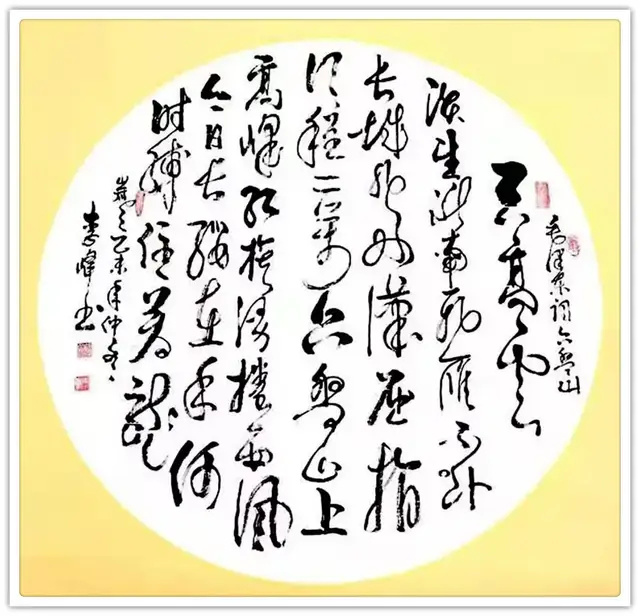 毛泽东词六盘山
天高云
淡望断南飞雁不到
长城非好汉屈指
行程二万六盘山上
高峰红旗漫卷西风
今日长缨在手何
时缚住苍龙
乙未年仲冬
李峰书